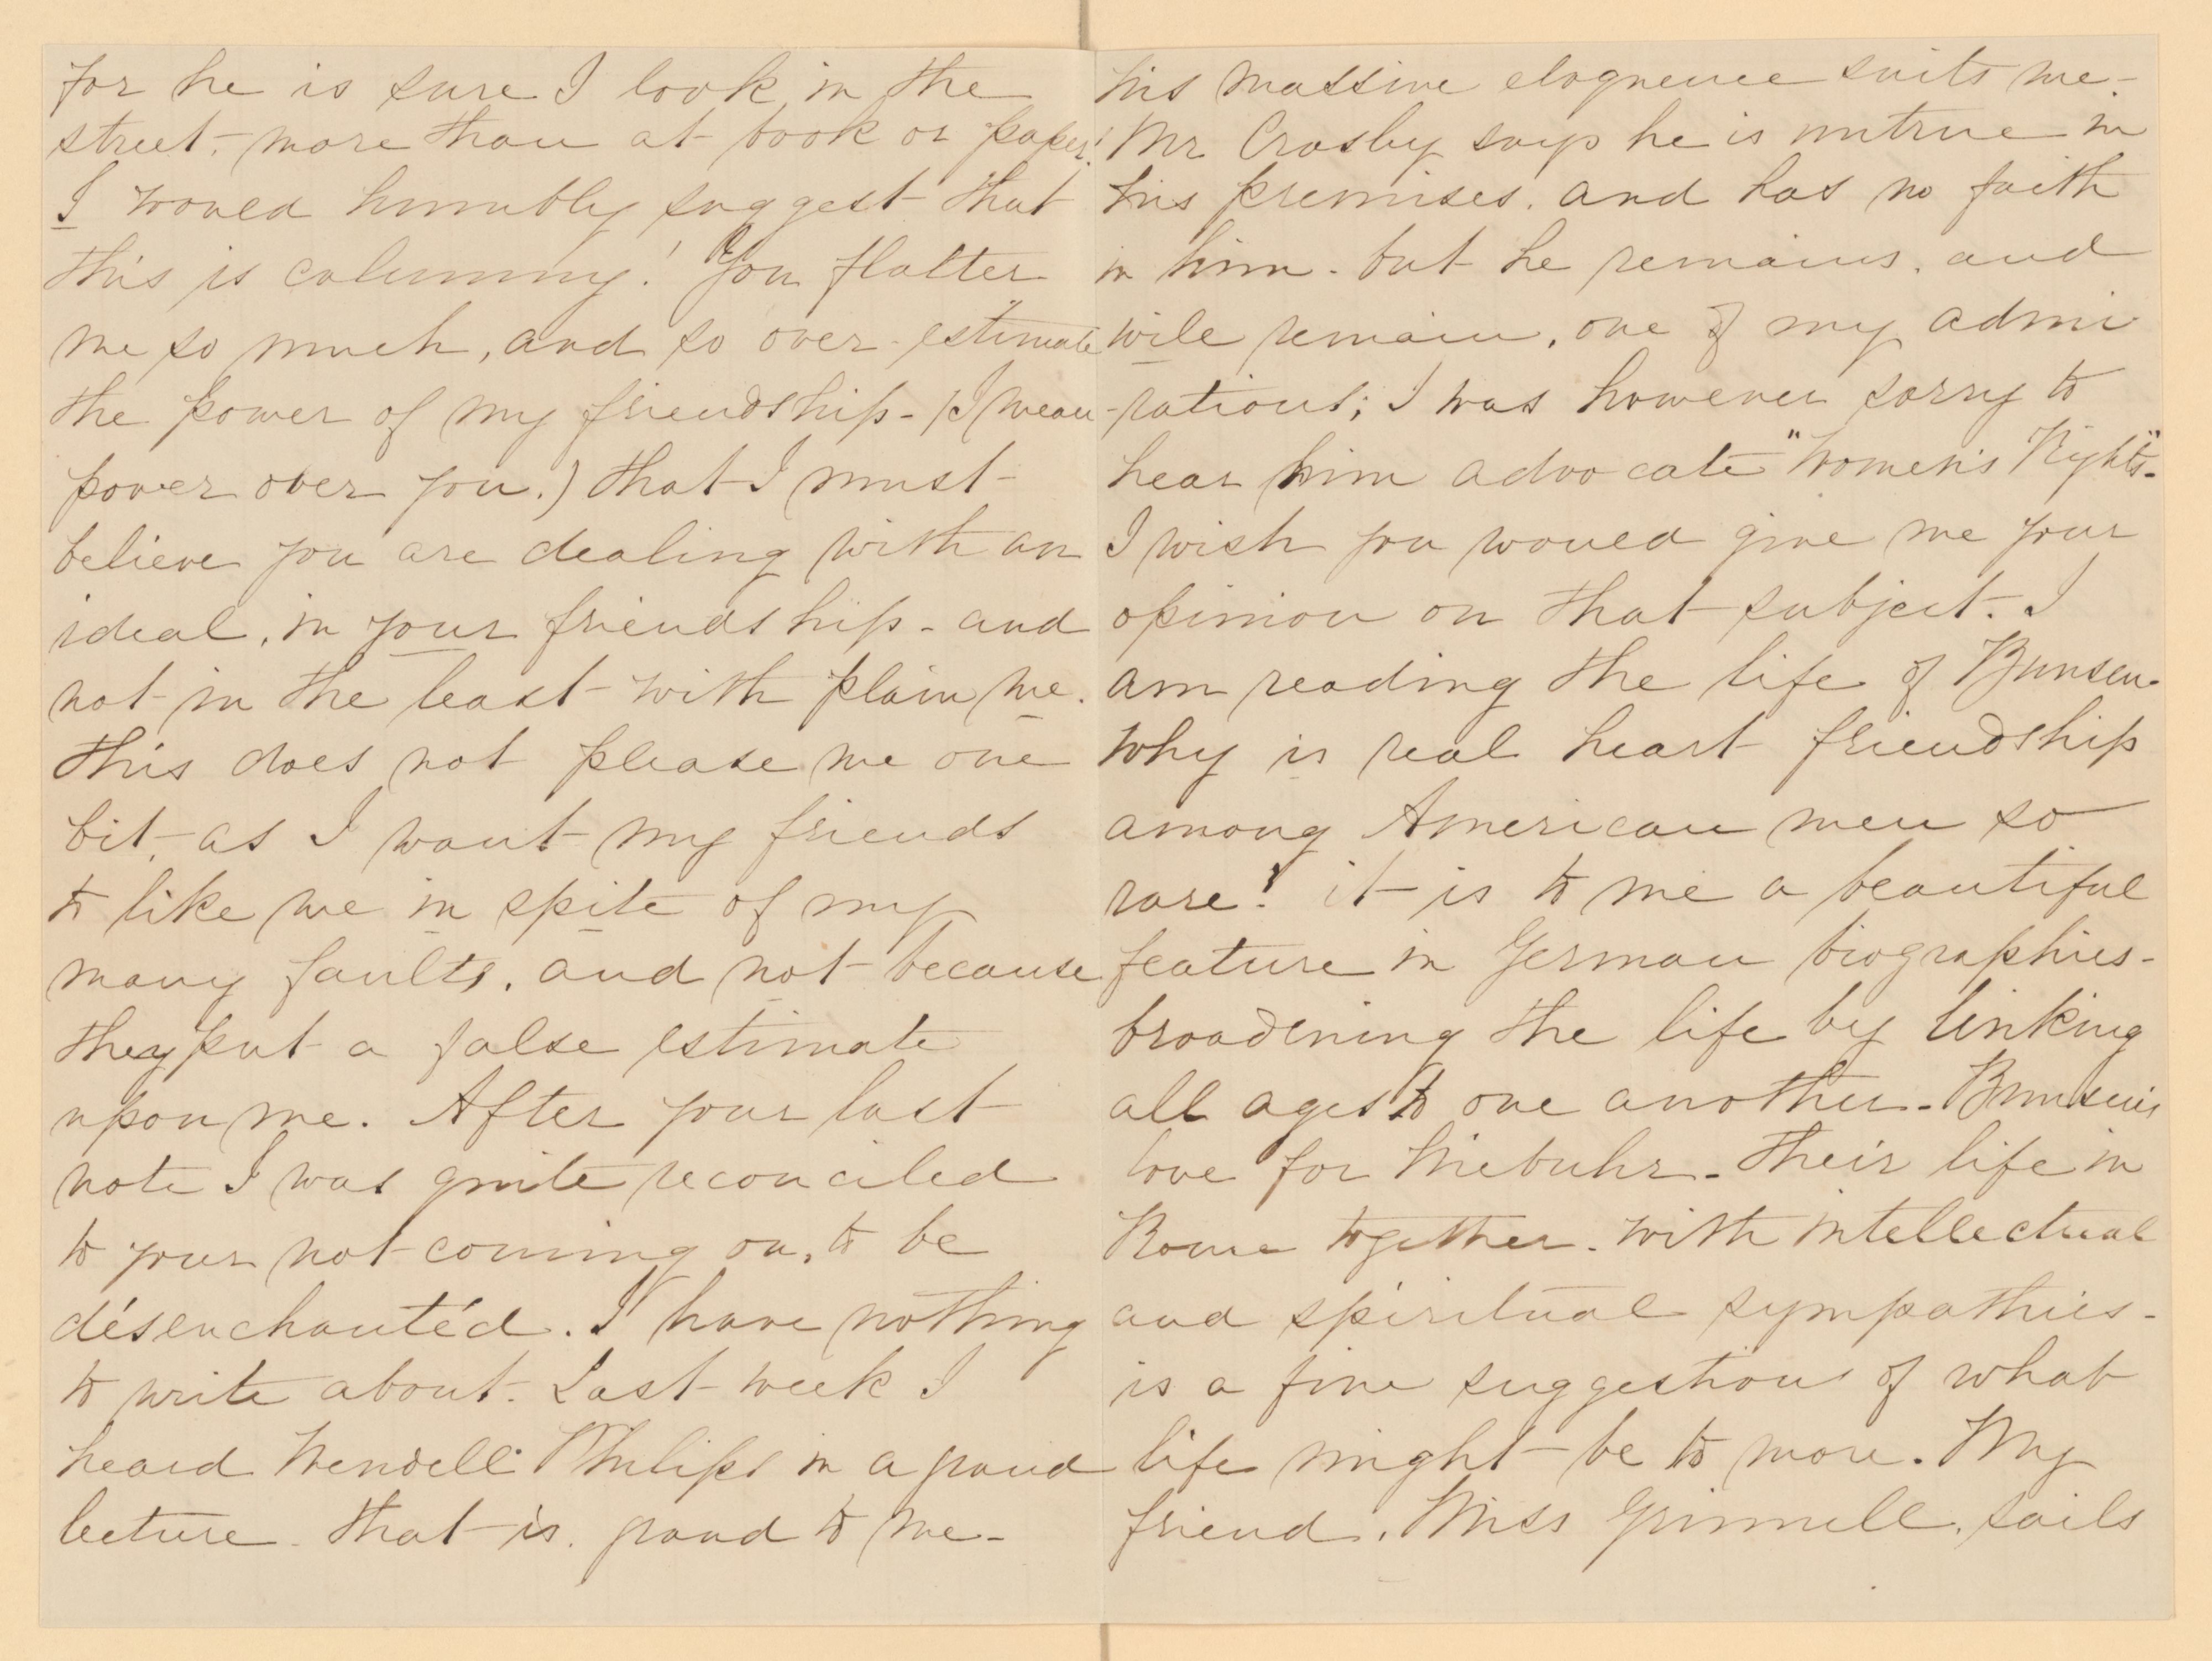 for he is sure I look in the
street, more than at book or paper!
I would humbly suggest that
this is calumny! You flatter
me so much, and so over-estimate
the power of my friendship - (I mean
power over you.) that I must
believe you are dealing with an
ideal, in your friendship - and
not in the least with plain me.
this does not please me one
bit, as I want my friends
to like me in spite of my
many faults, and not because
they put a false estimate
upon me. After your last
note I was quite reconciled
to your not coming on, to be
désenchantéd. I have nothing
to write about. Last week I
heard Wendell Philips in a grand
lecture. that is. grand to me -
his massive eloquence suits me -
Mr Crosby says he is untrue in
his premises. and has no faith
in him. but he remains, and
will remain, one of my admi
-rations; I was however sorry to
hear him advocate "Women's Rights".
I wish you would give me your
opinion on that subject. I
am reading the life of Bunsen.
Why is real heart friendship
among American men so
rare? it is to me a beautiful
feature in German biographies -
broadening the life by linking
all ages to one another - Bunsen's
love for Niebuhr - Their life in
Rome together. with intellectual
and spiritual sympathies -
is a fine suggestion of what
life might be to more. My
friend, Miss Grinnell, sails